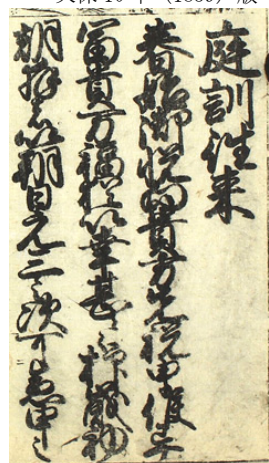 庭訓往来
春始御悦向貴方先祝申候畢
富貴万福猶以幸甚々抑歳初
朝拝者以朔日元三之次可急申之